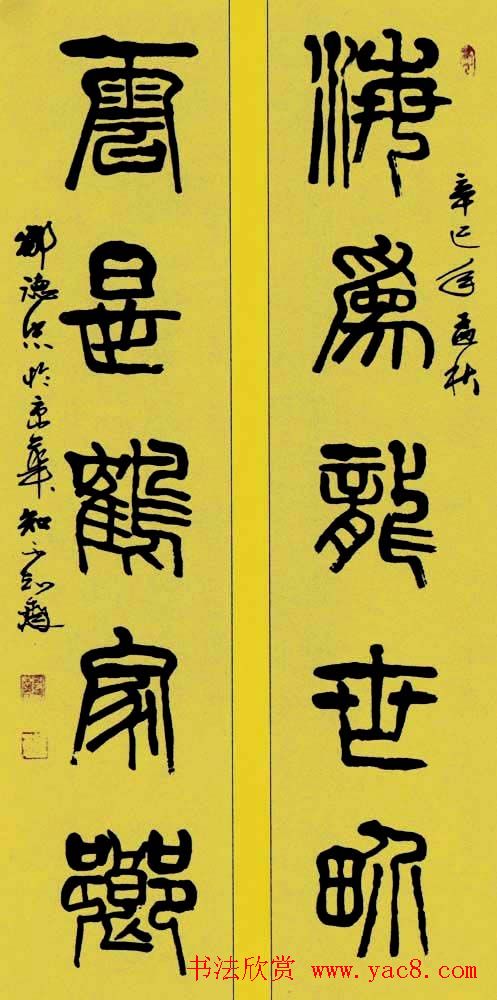 辛巳年孟秋
海爲龍世界
雲是鶴家鄉
鄒德忠於京華知不知齋
书法欣赏 www.yac8.com